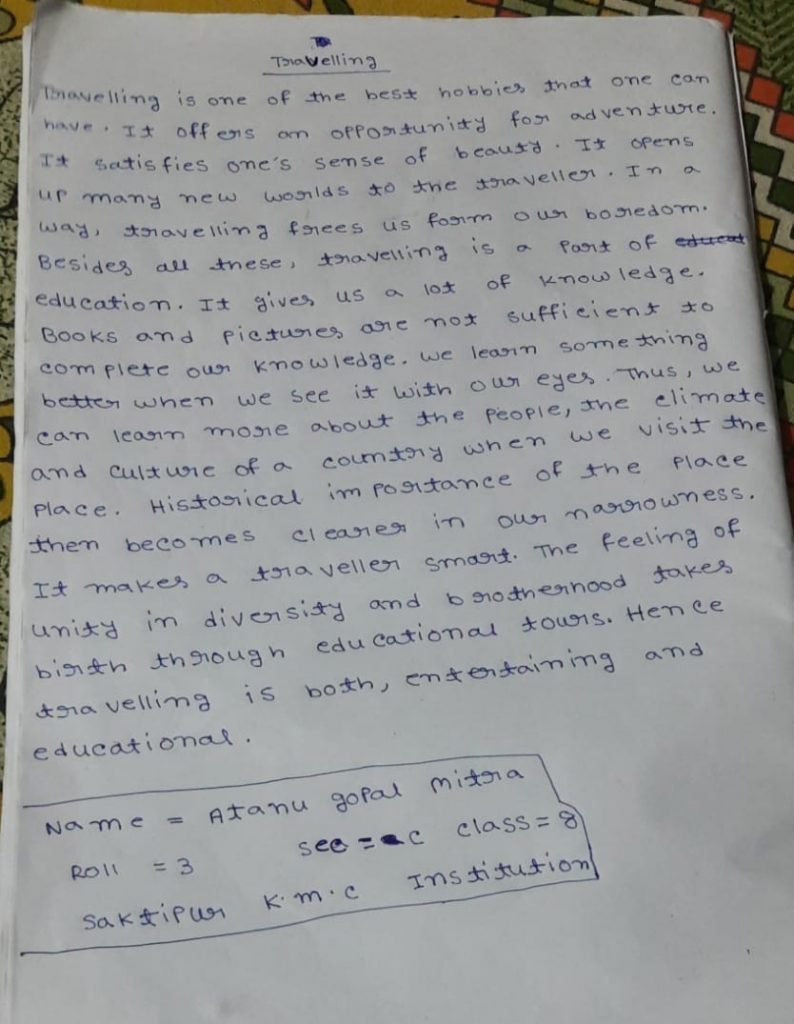 Travelling
Travelling is one of the best hobbies that one can
have. It offers an opportunity for adventure.
It satisfies one's sense of beauty. It opens
up many new worlds to the traveller. In a
way, travelling frees us form our boredom.
Besides all these, travelling is a part of educat
education. It gives us a lot of knowledge.
Books and pictures are not sufficient to
complete our knowledge. We learn something
better when we see it with our eyes. Thus, we
can learn more about the people, the climate
and culture of a country when we visit the
place. Historical importance of the place
then becomes clearer in our narrowness.
It makes a traveller smart. The feeling of
unity in diversity and brotherhood takes
birth through educational tours. Hence
travelling is both, entertaining and
educational.
Name = Atanu gopal mitra
Roll = 3 sec = c class = 8
Saktipur K.m.c Institution